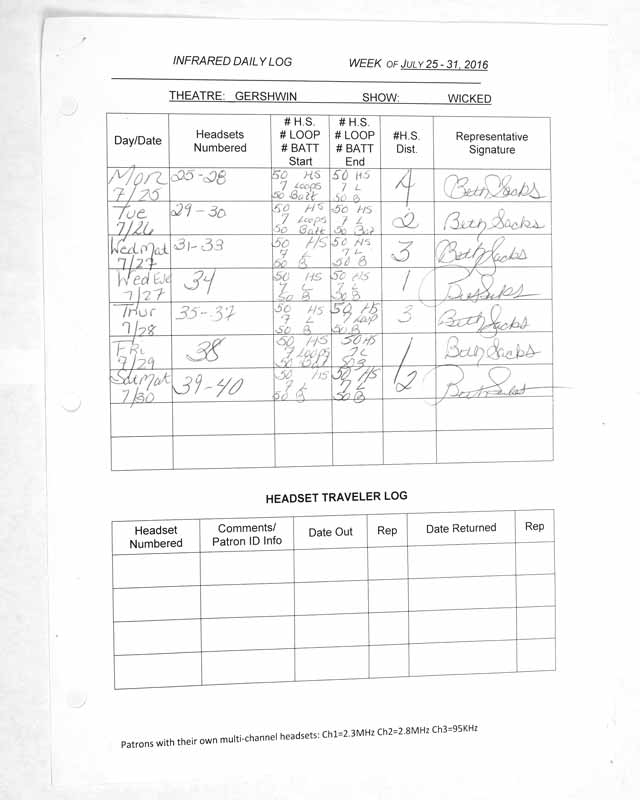 INFRARED DAILY LOG WEEK OF JULY 25 - 31, 2016
THEATRE: GERSHWIN SHOW: WICKED
Day/Date Headsets Numbered # H.S. # LOOP # BATT Start # H.S. # LOOP # BATT End #H.S. Dist. Representative Signature
Mon 7/25 25-28 50 HS 7 Loops 50 Batt 50 HS 7 L 50 B 4 Beth Sacks
Tue 7/26 29-30 50 HS 7 Loops 50 Batt 50 HS 7 L 50 Bat 2 Beth Sacks
Wed Mat 7/27 31-33 50 HS 7 L 50 B 50 HS 7 L 50 B 3 Beth Sacks
Wed Eve 7/27 34 50 HS 7 L 50 B 50 HS 7 L 50 B 1 Beth Sacks
Thur 7/28 35-37 50 HS 7 L 50 B 50 HS 7 Loop 50 B 3 Beth Sacks
Fri 7/29 38 50 HS 7 Loops 50 Batt 50 HS 7 L 50 B 1 Beth Sacks
Sat Mat 7/30 39-40 50 HS 7 L 50 B 50 HS 7 L 50 B 2 Beth Sacks
HEADSET TRAVELER LOG
Headset Numbered Comments/ Patron ID Info Date Out Rep Date Returned Rep
Patrons with their own multi-channel headsets: Ch1=2.3MHz Ch2=2.8MHz Ch3=95KHz